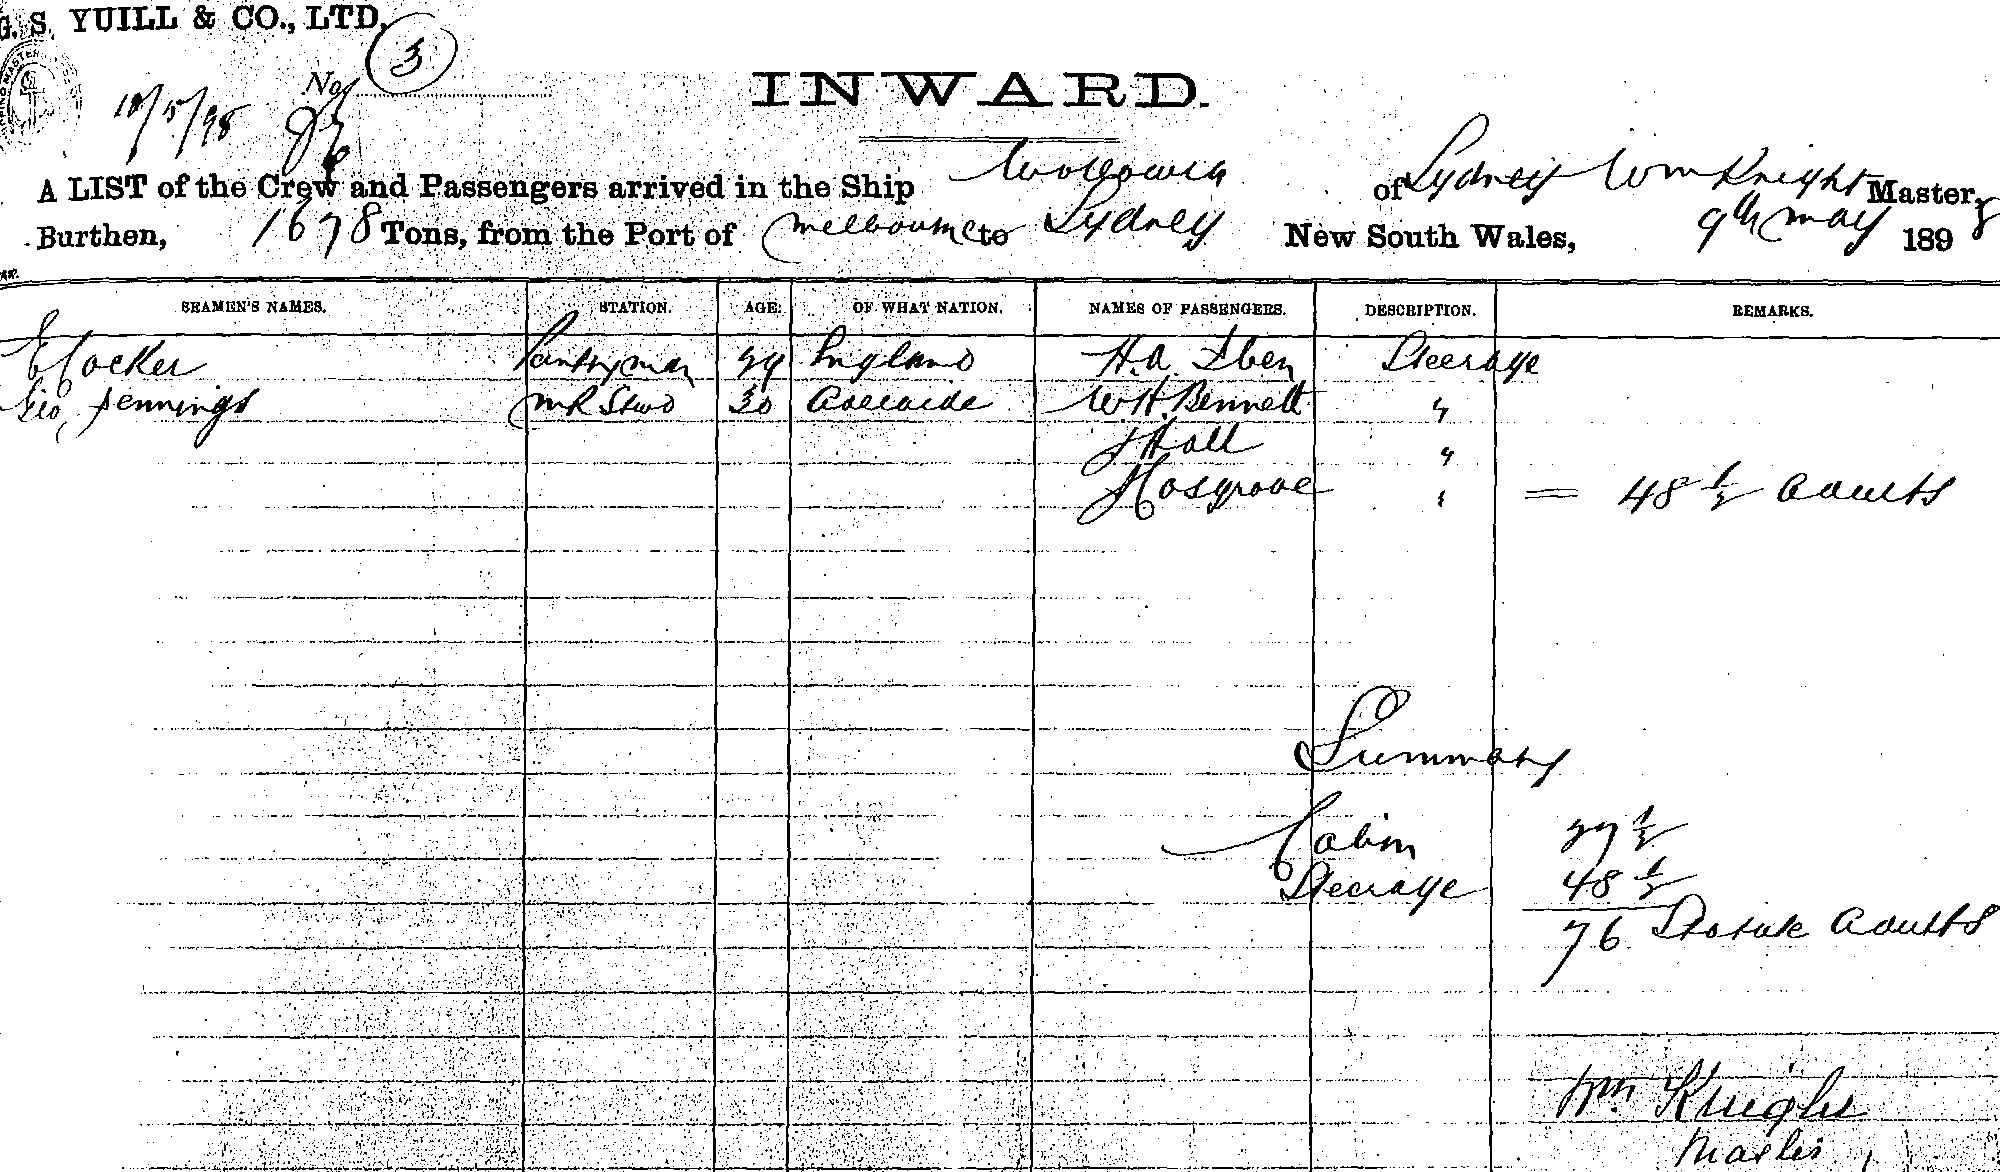 G. S. YUILL & CO., LTD.
3
No.
10/5/98
INWARD.
A LIST of the Crew and Passengers arrived in the Ship Wollowra of Sydney Wm Knight Master,
Burthen, 1678 Tons, from the Port of Melbourne to Sydney New South Wales, 9th May 1898
SEAMEN'S NAMES. STATION. AGE. OF WHAT NATION. NAMES OF PASSENGERS. DESCRIPTION. REMARKS.
E Cocker Pantryman 29 England H.A. Iben Steerage
Geo Jennings MR Stwd 30 Adelaide W.H. Bennett "
J Hall "
J Cosgrove " = 48 1/2 Adults
Summary
Cabin 27 1/2
Steerage 48 1/2
76 Statute Adults
Wm Knight
Master